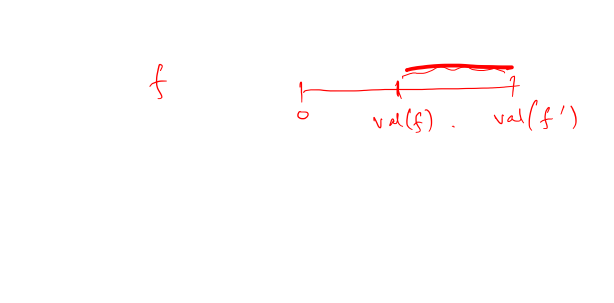 f
0 val(f) . val(f')